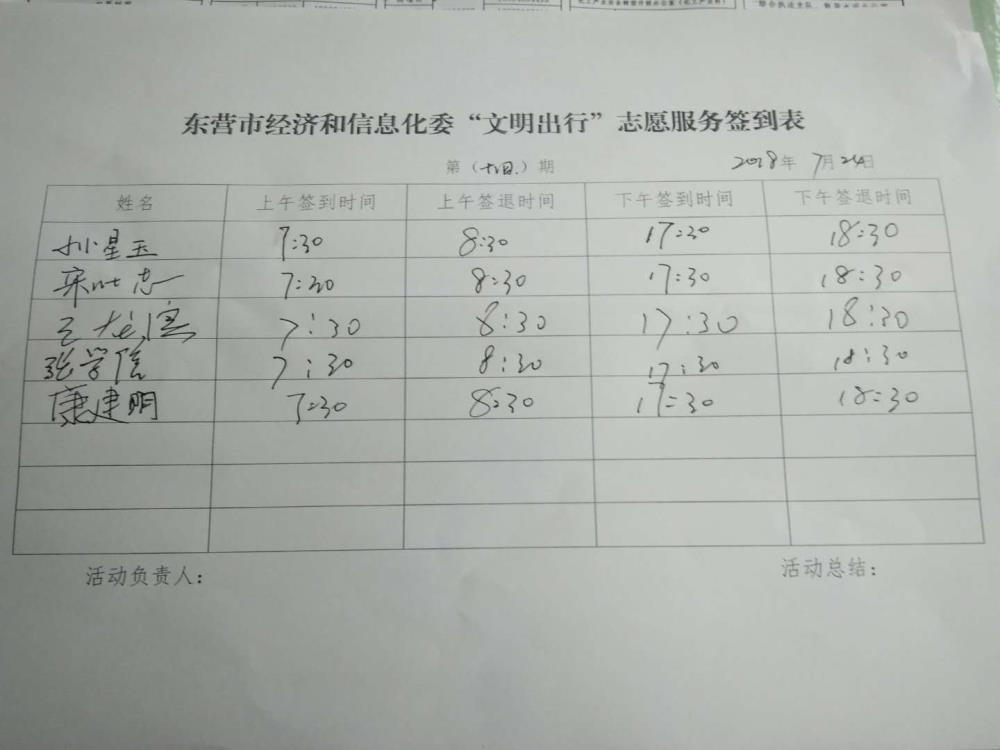 东营市经济和信息化委“文明出行”志愿服务签到表
第（）期 2018年 7月24日
姓名 上午签到时间 上午签退时间 下午签到时间 下午签退时间
孙星玉 7:30 8:30 17:30 18:30
宋叶志 7:30 8:30 17:30 18:30
王龙 7:30 8:30 17:30 18:30
张学信 7:30 8:30 17:30 18:30
康建明 7:30 8:30 17:30 18:30
活动负责人： 活动总结：